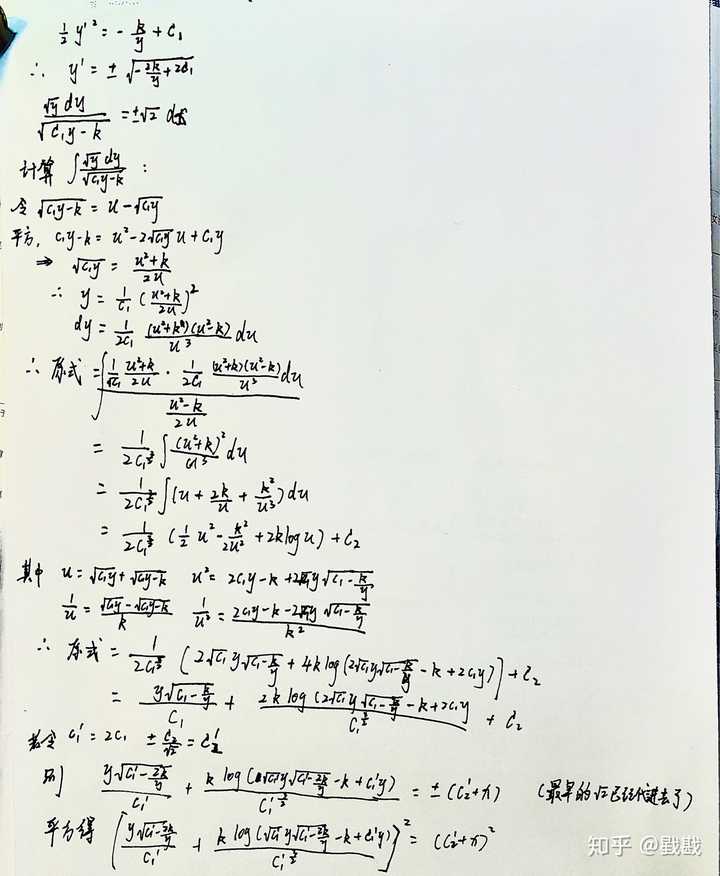 ½ y'² = -k/y + C₁
∴ y' = ±√(-2k/y + 2C₁)
√y dy / √(C₁y-k) = ±√2 dx
计算 ∫ √y dy / √(C₁y-k) :
令 √(C₁y-k) = u - √(C₁y)
平方, C₁y-k = u² - 2√(C₁y) u + C₁y
⇒ √(C₁y) = (u²+k)/2u
∴ y = 1/C₁ ((u²+k)/2u)²
dy = 1/2C₁ (u²+k)(u²-k)/u³ du
∴ 原式 = ∫ [1/√C₁ (u²+k)/2u · 1/2C₁ (u²+k)(u²-k)/u³ du] / [(u²-k)/2u]
= 1/(2C₁^(3/2)) ∫ (u²+k)²/u³ du
= 1/(2C₁^(3/2)) ∫ (u + 2k/u + k²/u³) du
= 1/(2C₁^(3/2)) (½u² - k²/2u² + 2k log u) + C₂
其中 u = √(C₁y) + √(C₁y-k) u² = 2C₁y - k + 2√C₁ y √(C₁ - k/y)
1/u = (√(C₁y) - √(C₁y-k))/k 1/u² = (2C₁y - k - 2√C₁ y √(C₁ - k/y))/k²
∴ 原式 = 1/(2C₁^(3/2)) [2√C₁ y √(C₁ - k/y) + 4k log(2√C₁ y √(C₁ - k/y) - k + 2C₁y)] + C₂
= y√(C₁ - k/y)/C₁ + 2k log(2√C₁ y √(C₁ - k/y) - k + 2C₁y)/C₁^(3/2) + C₂
C₁' = 2C₁ ± C₂/√2 = C₂'
则 y√(C₁' - 2k/y)/C₁' + k log(√C₁' y √(C₁' - 2k/y) - k + C₁'y)/C₁'^(3/2) = ±(C₂'+x) (最早的√2已经代进去了)
平方得 {y√(C₁' - 2k/y)/C₁' + k log(√C₁' y √(C₁' - 2k/y) - k + C₁'y)/C₁'^(3/2)}² = (C₂'+x)²
知乎 @戥戡